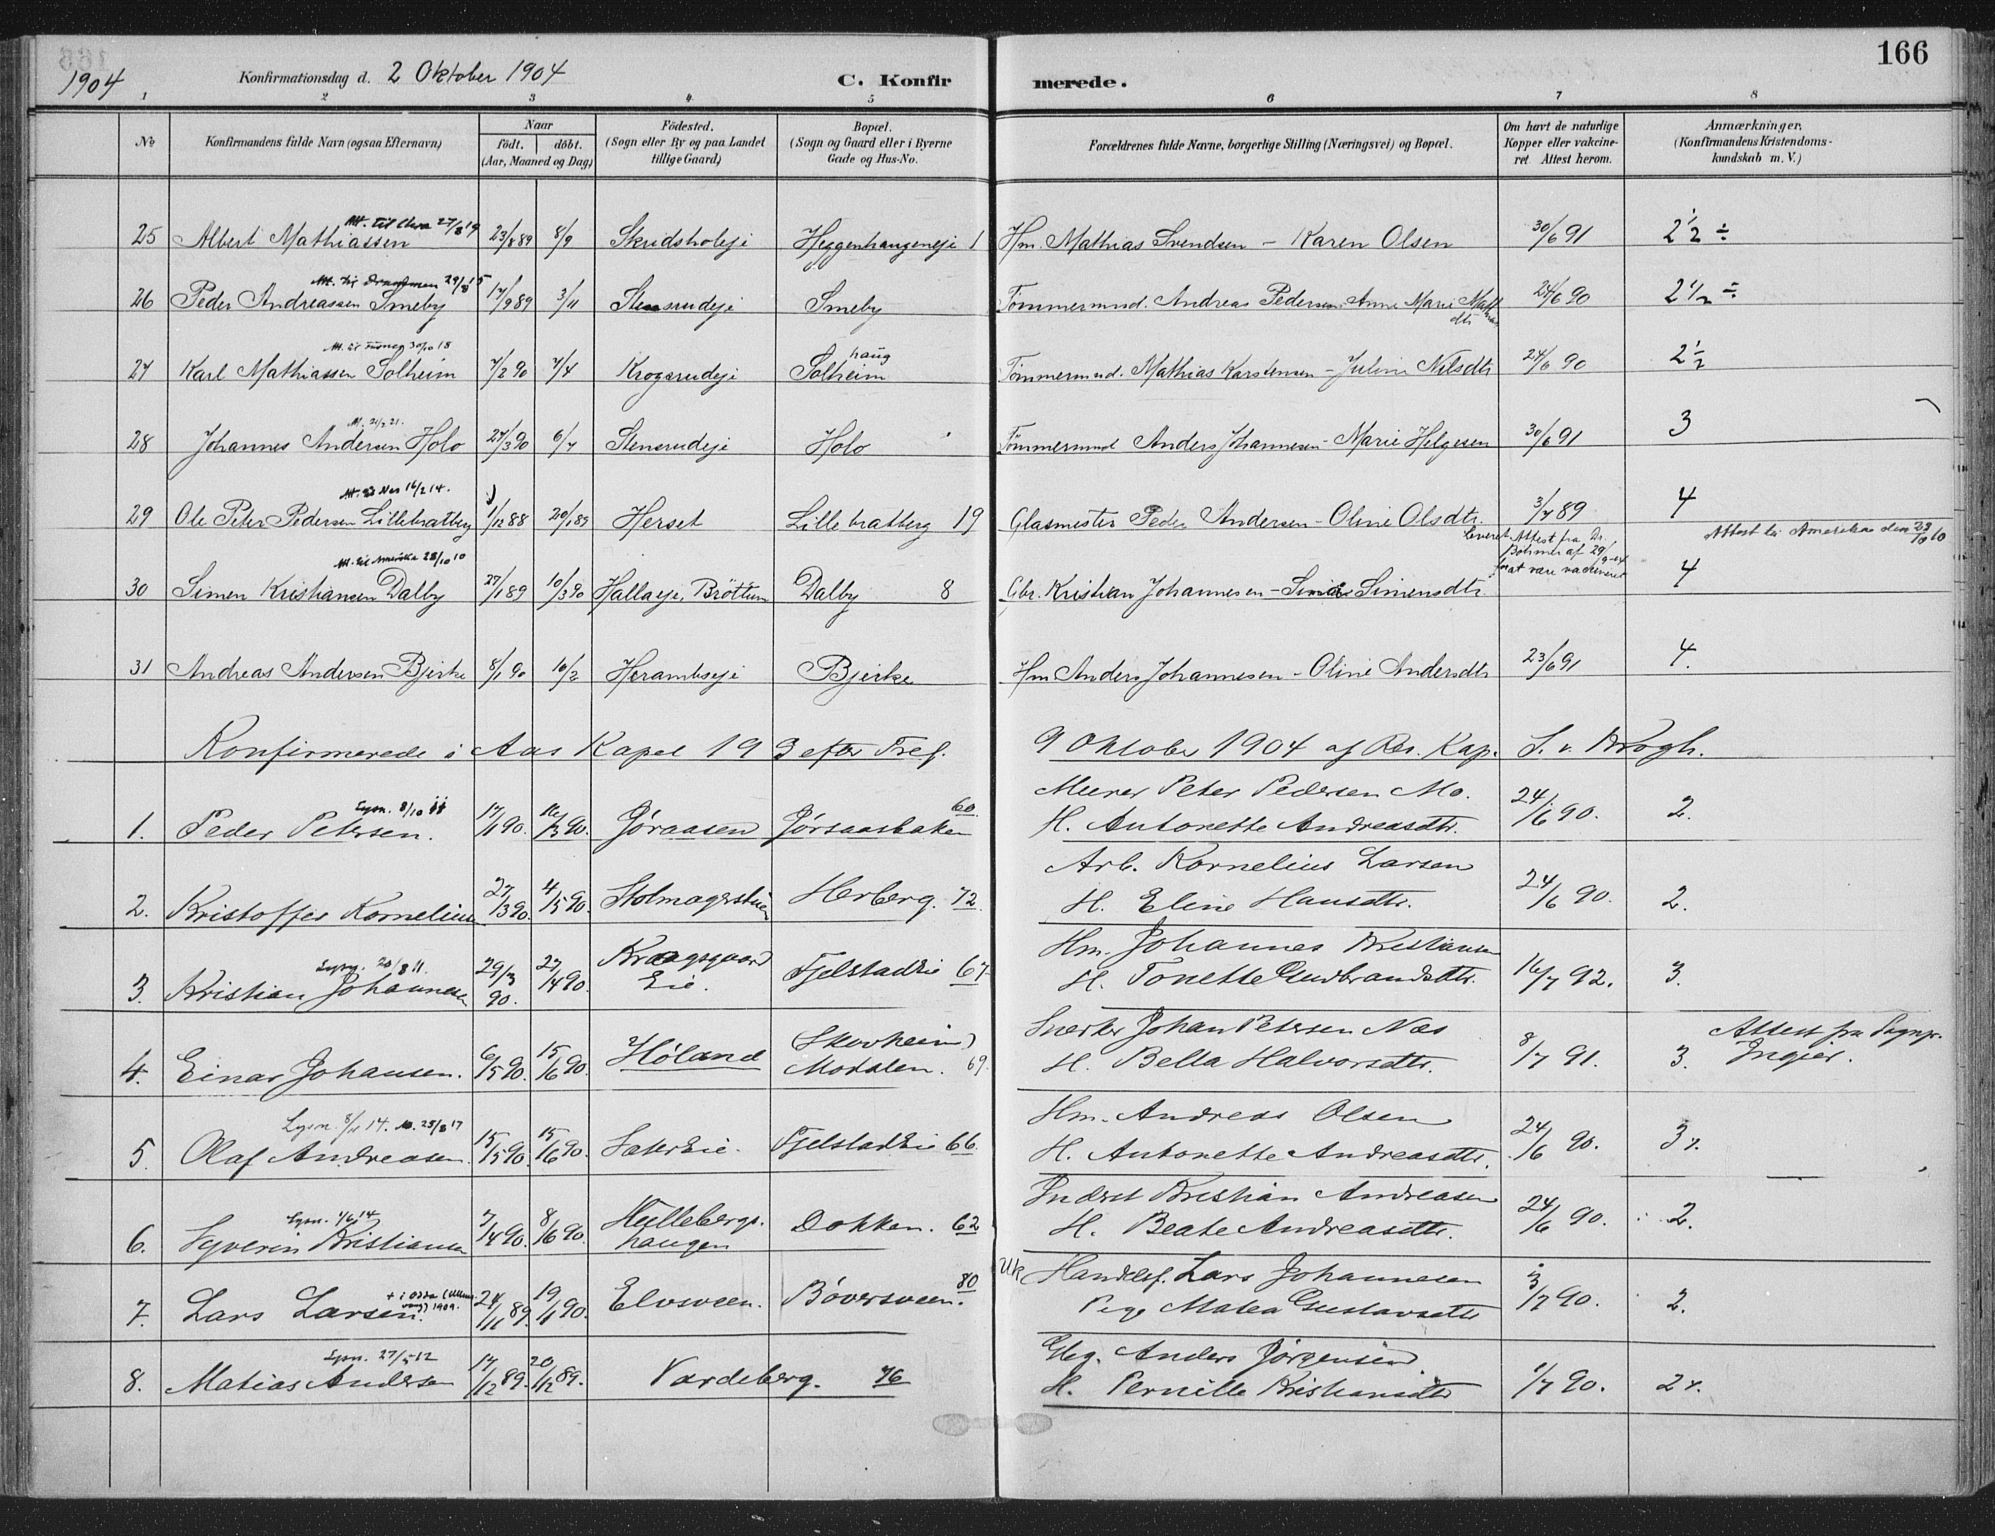 166
1904 Konfirmationsdag d. 2 Oktober 1904 C. Konfirmerede.
1 2 3 4 5 6 7 8
No Konfirmandens fulde Navn (ogsaa Efternavn) Naar födt. döbt. (Aar, Maaned og Dag) Födested. (Sogn eller By og paa Landet tillige Gaard) Bopæl. (Sogn og Gaard eller i Byerne Gade og Hus-No. Forældrenes fulde Navne, borgerlige Stilling (Næringsvei) og Bopæl. Om havt de naturlige Kopper eller vakcineret Attest herom. Anmærkninger. (Konfirmandens Kristendomskundskab m. V.)
Att. til 27/8 19
25 Albert Mathiassen 23/8 89 8/9 Skridsholeje Heggenhaugeneje 1 Hm. Mathias Svendsen - Karen Olsen 30/6 91 2 1/2 ÷
Att. til Drammen 29/8 15
26 Peder Andreassen Smeby 17/9 89 3/11 Stensrudeje Smeby Tömmermnd. Andreas Pedersen - Anne Marie Mathias dtr 24/6 90 2 1/2 ÷
Att. til Furnes 30/10 18
27 Karl Mathiassen Solheim 7/2 90 7/4 Krogsrudeje Solheim haug Tömmermnd. Mathias Karstensen - Juline Nilsdtr 24/6 90 2 1/2
21/2 21.
28 Johannes Andersen Holo 27/3 90 6/7 Stensrudeje Holo Tömmermnd Anders Johannesen - Marie Helgesen 30/6 91 3
Att. til Nes 16/2 14.
29 Ole Peter Pedersen Lillebratberg 1/12 88 20/1 89 Herset Lillebratberg 19 Glasmester Peder Andersen - Oline Olsdtr. 3/7 89 4
Attest til Amerika den 28/10 10
leveret Attest fra Dr. Böhmer af 29/9-04 for at være vaccineret
Att. til Amerika 28/10 10
30 Simen Kristiansen Dalby 27/1 89 10/3 90 Hallaeje, Bröttum Dalby 8 Gbr. Kristian Johannesen - Simensdtr. 4
31 Andreas Andersen Bjerke 8/1 90 16/2 Herambseje Bjerke Hm Anders Johannesen - Oline Andersdtr 23/6 91 4.
Konfirmerede i Aas Kapel 19 S efter Tref. 9 Oktober 1904 af Res. Kap. S. v. Krogh.
Lysn. 8/10 Murer Peter Pedersen Mo.
1. Peder Petersen. 17/1 90. 16/3 90. Jøraasen Jørsaasbaken 60 H. Antonette Andreasdtr. 24/6 90. 2.
Arb. Kornelius Larsen
2. Kristoffer Kornelius 27/3 90. 4/5 90. Stolmagerstuen Herberg. 72. H. Eline Hansdtr. 24/6 90. 2.
Lysn. 20/8 11. Hm. Johannes Kristiansen
3. Kristian Johannesen 29/3 90. 27/4 90. Kragsgaard Eie. Fjelstadeie 67. H. Tonette Gudbrandsdtr. 16/7 92. 3.
Snerker Johan Petersen Næs
4. Einar Johansen. 6/5 90. 15/6 90. Høland (Skovheim) Moxdlen. 69. H. Bella Halvorsdtr. 8/7 91. 3. Attest fra Sognpr. Ingier.
Lysn. 8/11 14. 25/8 17 Hm. Andreas Olsen
5. Olaf Andreasen. 15/5 90. 15/6 90. Sætereie. Fjelstadeie 66. H. Antonette Andreasdtr. 24/6 90. 3
Lysn. 1/6 14 Inderst Kristian Andreasen
6. Syverin Kristiansen 7/4 90. 8/6 90. Hullebergs-haugen Dokken. 62 H. Beate Andreasdtr. 24/6 90. 2.
+ i Osda 1909. Uk Handelsf. Lars Johannesen
7. Lars Larsen. 24/11 89. 19/1 90. Elvsveen. Bøversveen. 80 Pige Matea Gustavsdtr 3/7 90. 2.
Lysn. 27/5 12 Gbg. Anders Jørgensen
8. Matias Andersen 17/12 89. 20/12 89. Vardeberg. 76 H. Pernille Kristiansdtr 1/7 90. 2